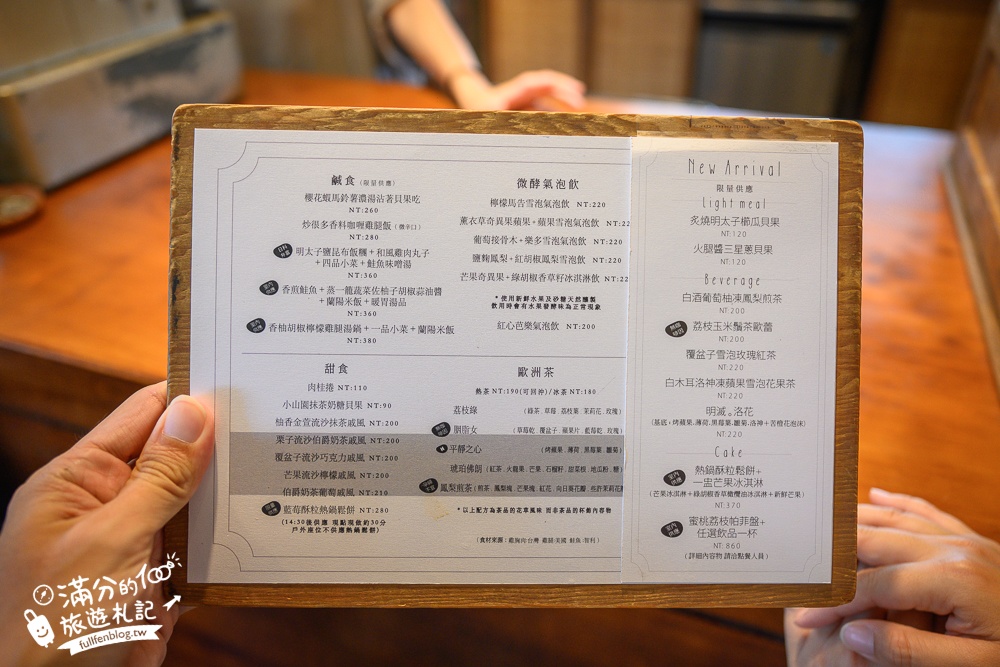 鹹食(限量供應)
櫻花蝦馬鈴薯濃湯沾著貝果吃
NT:260
炒很多香料咖喱雞腿飯(微辛口)
NT:280
明太子鹽昆布飯糰+和風雞肉丸子
+四品小菜+鮭魚味噌湯
NT:360
香煎鮭魚+蒸一籠蔬菜佐柚子胡椒蒜油醬
+蘭陽米飯+暖胃湯品
NT:360
香柚胡椒檸檬雞腿湯鍋+一品小菜+蘭陽米飯
NT:380
微酵氣泡飲
檸檬馬告雪泡氣泡飲 NT:220
薰衣草奇異果蘋果+蘋果雪泡氣泡飲 NT:22
葡萄接骨木+樂多雪泡氣泡飲 NT:220
鹽麴鳳梨+紅胡椒鳳梨雪泡飲 NT:220
芒果奇異果+綠胡椒香草籽冰淇淋飲 NT:22
*使用新鮮水果及砂糖天然釀製
飲用時會有水果發酵味為正常現象
紅心芭樂氣泡飲 NT:200
甜食
肉桂捲 NT:110
小山園抹茶奶糖貝果 NT:90
柚香金萱流沙抹茶戚風 NT:200
栗子流沙伯爵奶茶戚風 NT:200
覆盆子流沙巧克力戚風 NT:200
芒果流沙檸檬戚風 NT:200
伯爵奶茶葡萄戚風 NT:210
藍莓酥粒熱鍋鬆餅 NT:280
(14:30後供應 現點現做約30分
戶外座位不供應熱鍋鬆餅)
歐洲茶
熱茶 NT:190(可回沖)/冰茶 NT:180
荔枝綠 (綠茶.草莓.荔枝果.茉莉花.玫瑰)
胭脂女 (草莓乾.覆盆子.蘋果片.藍莓乾.玫瑰)
平靜之心 (烤蘋果.薄荷.黑莓葉.雛菊)
琥珀佛朗 (紅茶.火龍果.芒果.石榴籽.甜菜根.地瓜粉.糖)
鳳梨煎茶 (煎茶.鳳梨塊.芒果塊.紅花.向日葵花瓣.些許茉莉花
*以上配方為茶品的花草風味 而非茶品的杯飲內容物
(食材來源:雞腿肉台灣 雞翅:美國 鮭魚:智利)
New Arrival
限量供應
Light meal
炙燒明太子櫛瓜貝果
NT:120
火腿醬三星蔥貝果
NT:120
Beverage
白酒葡萄柚凍鳳梨煎茶
NT:200
荔枝玉米鬚茶歐蕾
NT:200
覆盆子雪泡玫瑰紅茶
NT:220
白木耳洛神凍蘋果雪泡花果茶
NT:220
明滅。洛花
(基底:烤蘋果.薄荷.黑莓葉.雛菊.洛神+苦橙花泡沫)
NT:220
Cake
熱鍋酥粒鬆餅+
一盅芒果冰淇淋
(芒果冰淇淋+綠胡椒香草橄欖油冰淇淋+新鮮芒果)
NT:370
蜜桃荔枝帕菲盤+
任選飲品一杯
NT: 860
(詳細內容物 請洽點餐人員)
滿分的100
旅遊札記
fullfenblog.tw